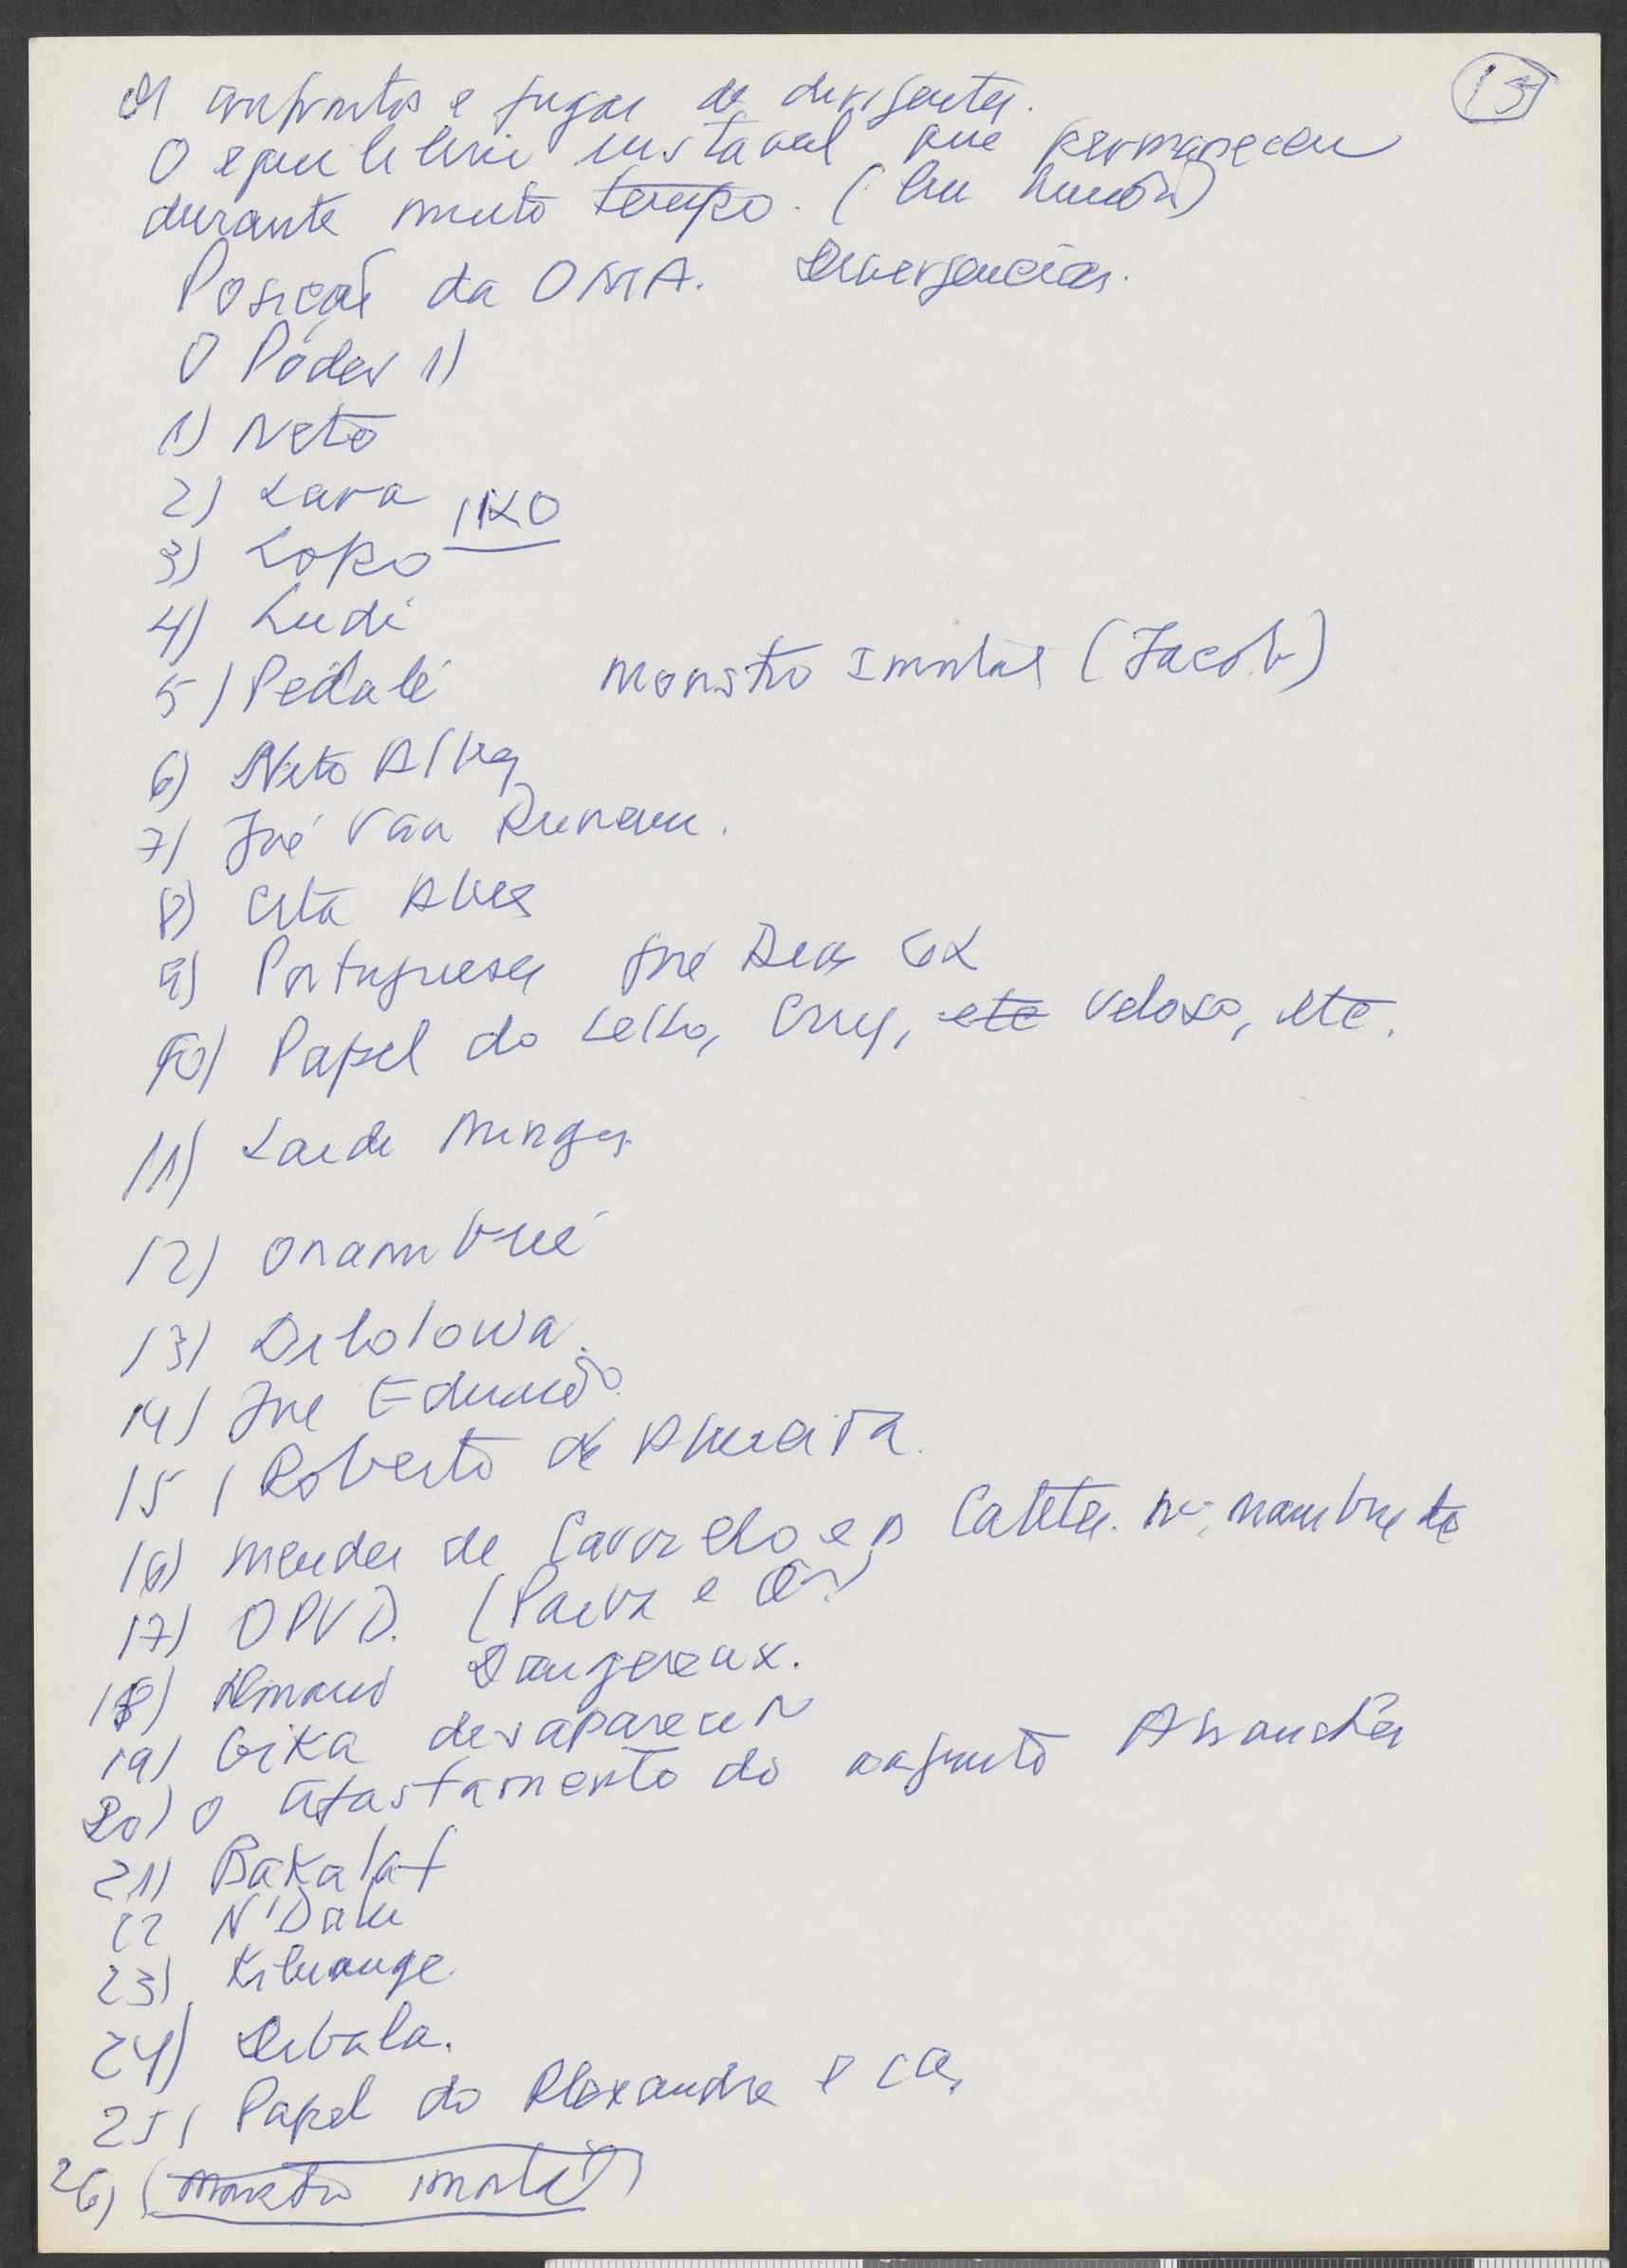 13
Os confrontos e fugas de dirigentes.
O equilibrio instavel que permaneceu
durante muito tempo. (
Posição da OMA. Divergencias.
O Poder 1)
1) Neto
2) Lara
3) Lopo
4) Ludi
5) Pedalé Monstro Imortal (Jacob)
6) Nito Alves
7) José Van Dunem.
8) Cita Alves
9) Portugueses José
10) Papel do Lello, Cruz, etc Veloso, etc.
11) Mingas
12) Onambwé
13) Dilolowa.
14) José Eduardo.
15) Roberto de Almeida.
16) Mendes de Carvalho e a Catete.
17) OPVD. (Paiva e
18) Dangereux.
19) Gika desapareceu
20) O afastamento do conjunto
21) Bakalaf
22 N'Dalu
23) Kiluange.
24) Dibala.
25) Papel do Alexandre e Ca,
26) (Monstro imortal)